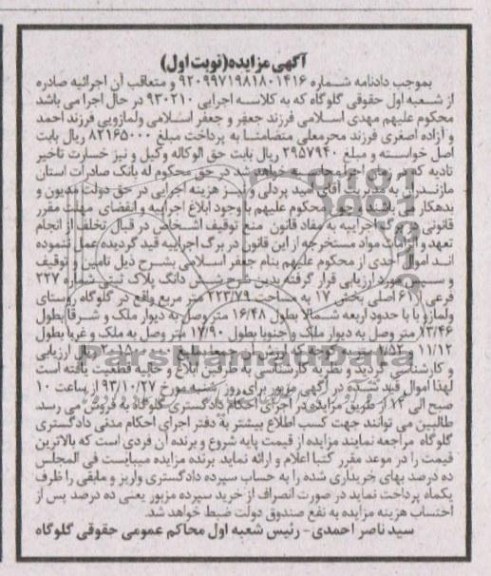 آگهی مزایده(نوبت اول)
بموجب دادنامه شماره ۹۲۰۹۹۷۱۹۸۱۸۰۱۴۱۶ و متعاقب آن اجرائیه صادره
از شعبه اول حقوقی گلوگاه که به کلاسه اجرایی ۹۳۰۲۱۰ در حال اجرا می باشد
محکوم علیهم مهدی اسلامی فرزند جعفر و جعفر اسلامی ولمازویی فرزند احمد
و آزاده اصغری فرزند محرمعلی متضامنا به پرداخت مبلغ ۸۲۱۶۵۰۰۰ ریال بابت
اصل خواسته و مبلغ ۲۹۵۷۹۴۰ ریال بابت حق الوکاله وکیل و نیز خسارت تاخیر
تادیه که در زمان اجرا محاسبه خواهد شد در حق محکوم له بانک صادرات استان
مازندران به مدیریت آقای سید پردلی و نیز هزینه اجرایی در حق دولت مدیون و
بدهکار می باشد محکوم علیهم باوجود ابلاغ اجراییه و انقضای مهلت مقرر
قانونی اجراییه به مفاد قانون منع توقیف اشخاص در قبال تخلف از انجام
تعهد و الزامات مواد مستخرجه از این قانون در برگ اجراییه قید گردیده عمل ننموده
اند اموال احدی از محکوم علیهم بنام جعفر اسلامی بشرح ذیل تامین و توقیف
و سپس مورد ارزیابی قرار گرفت بدین شرح شش دانگ پلاک ثبتی شماره ۲۲۷
فرعی از ۶۱ اصلی بخش ۱۷ به مساحت ۲۲۳/۷۹ متر مربع واقع در گلوگاه روستای
ولمازو با با حدود اربعه شمالا بطول ۱۶/۴۸ متر وصل به دیوار ملک و شرقا بطول
۲۳/۴۶ متر وصل به دیوار ملک و جنوبا بطول ۱۷/۹۰ متر وصل به ملک و غربا بطول
۱۱/۱۲ و ریال ارزیابی
و کارشناسی گردید و نظریه کارشناسی به طرفین ابلاغ و حالیه قطعیت یافته است
لهذا اموال قید شده در آگهی مزبور برای روز شنبه مورخ ۹۳/۱۰/۲۷ از ساعت ۱۰
صبح الی ۱۲ از طریق مزایده در اجرای احکام دادگستری گلوگاه به فروش می رسد.
طالبین می توانند جهت کسب اطلاع بیشتر به دفتر اجرای احکام مدنی دادگستری
گلوگاه مراجعه نمایند مزایده از قیمت پایه شروع و برنده آن فردی است که بالاترین
قیمت را در موعد مقرر کتبا اعلام و ارائه نماید برنده مزایده میبایست فی المجلس
ده درصد بهای خریداری شده را به حساب سپرده دادگستری واریز و مابقی را ظرف
یکماه پرداخت نماید در صورت انصراف از خرید سپرده مزبور یعنی ده درصد پس از
احتساب هزینه مزایده به نفع صندوق دولت ضبط خواهد شد.
سید ناصر احمدی- رئیس شعبه اول محاکم عمومی حقوقی گلوگاه
ParsNamadData